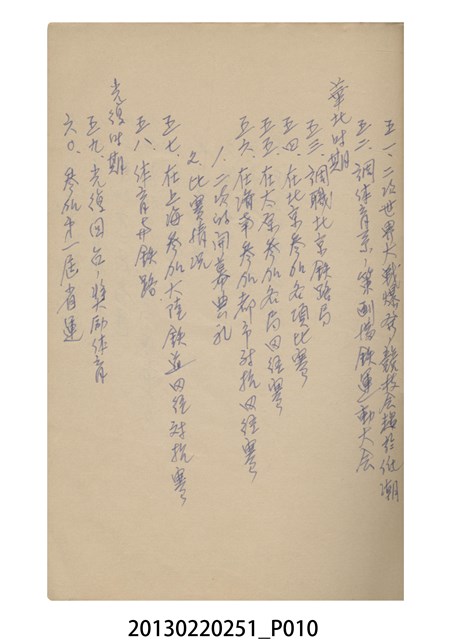 五一、二次世界大戰爆發，競技会趨於低潮
五二、調体育系，策劃滿鉄運動大会
華北时期
五三、調職北京鉄路局
五四、在北京參加各項比賽
五五、在太原參加各局田徑賽
五六、在濟南參加都市対抗田徑賽
1. 二次的開幕典礼
2. 比賽情況
五七、在上海參加大陸鉄道田徑対抗賽
五八、体育与鉄路
光復时期
五九、光復回台，獎励体育
六〇、參加第一屆省運
20130220251_P010